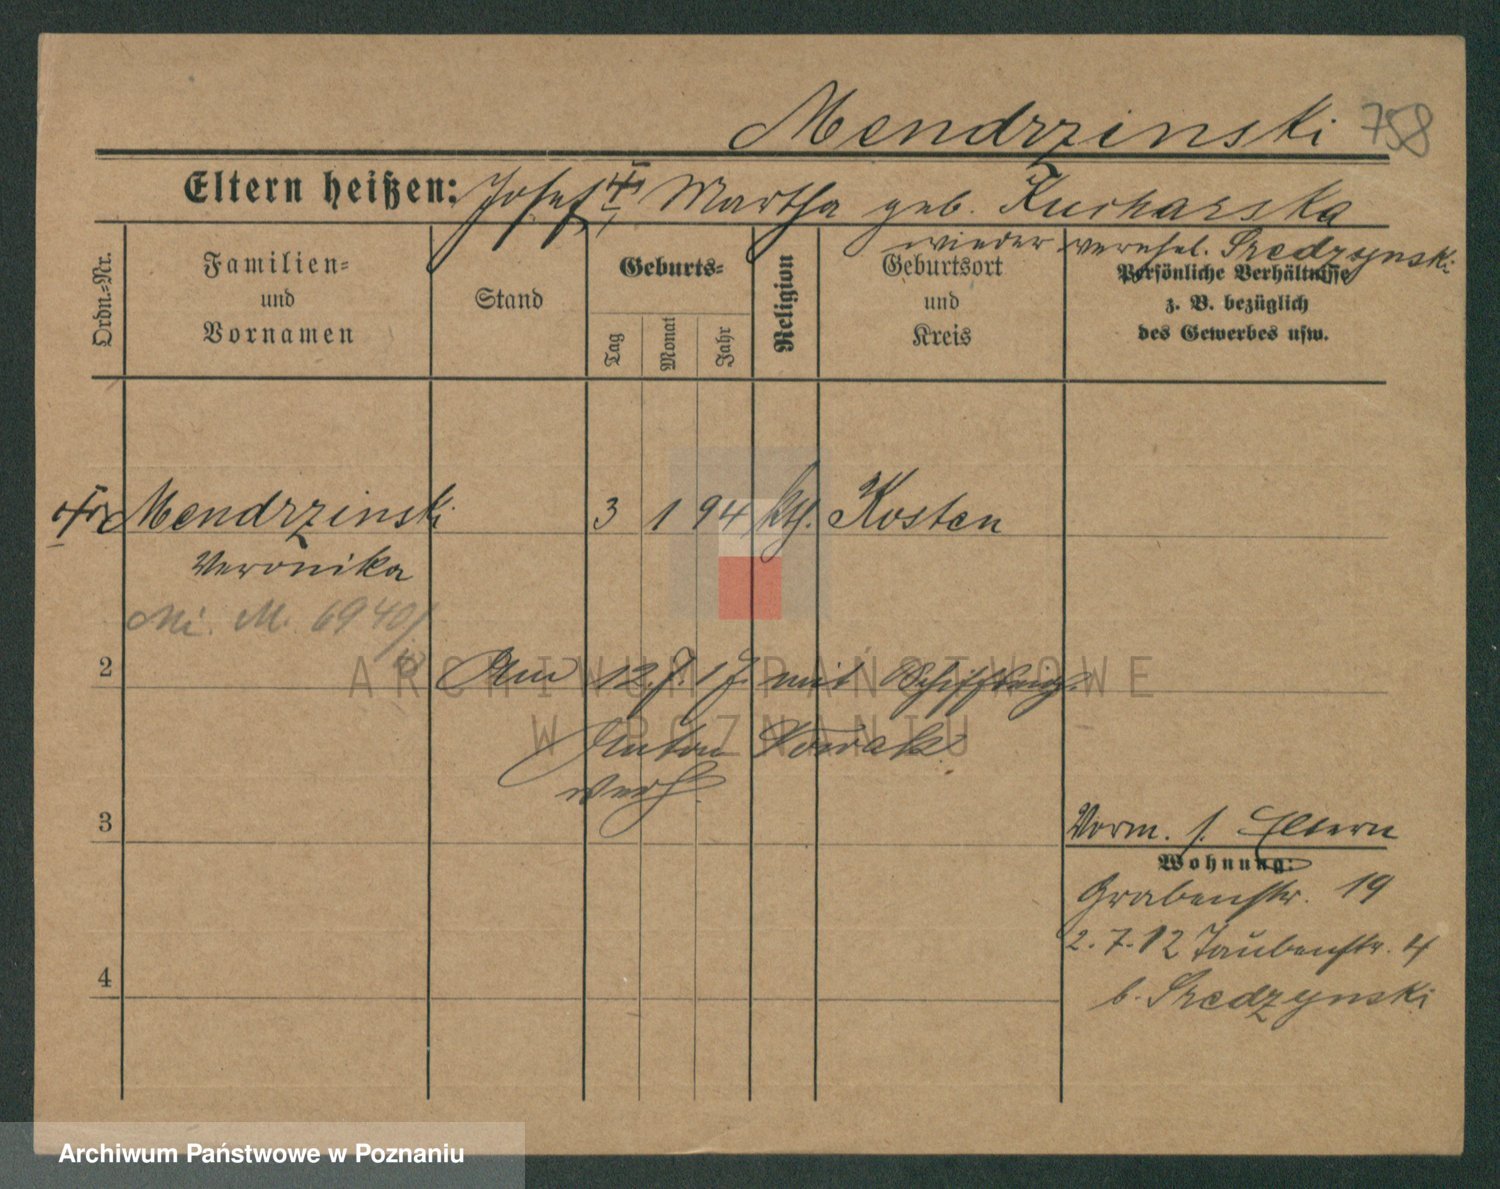 Mendrzinski 758
Eltern heißen: Josef Martha geb. Kucharska
wieder verehel. Sredzynski
Ordn.-Nr.
Familien-
und
Vornamen
Stand
Geburts-
Tag
Monat
Jahr
Religion
Geburtsort
und
Kreis
Persönliche Verhältnisse
z. B. bezüglich
des Gewerbes usw.
Mendrzinski 3 1 94 kth. Kosten
Veronika
Mi. M. 6940/
2 Am 12.7.17. mit
ARCHIWUM PAŃSTWOWE
W POZNANIU
Anton Nowak
verh
3
Vorm. s. Eltern
Wohnung:
Grabenstr. 19
2.7.12 Taubenstr. 4
b. Sredzynski
4
Archiwum Państwowe w Poznaniu